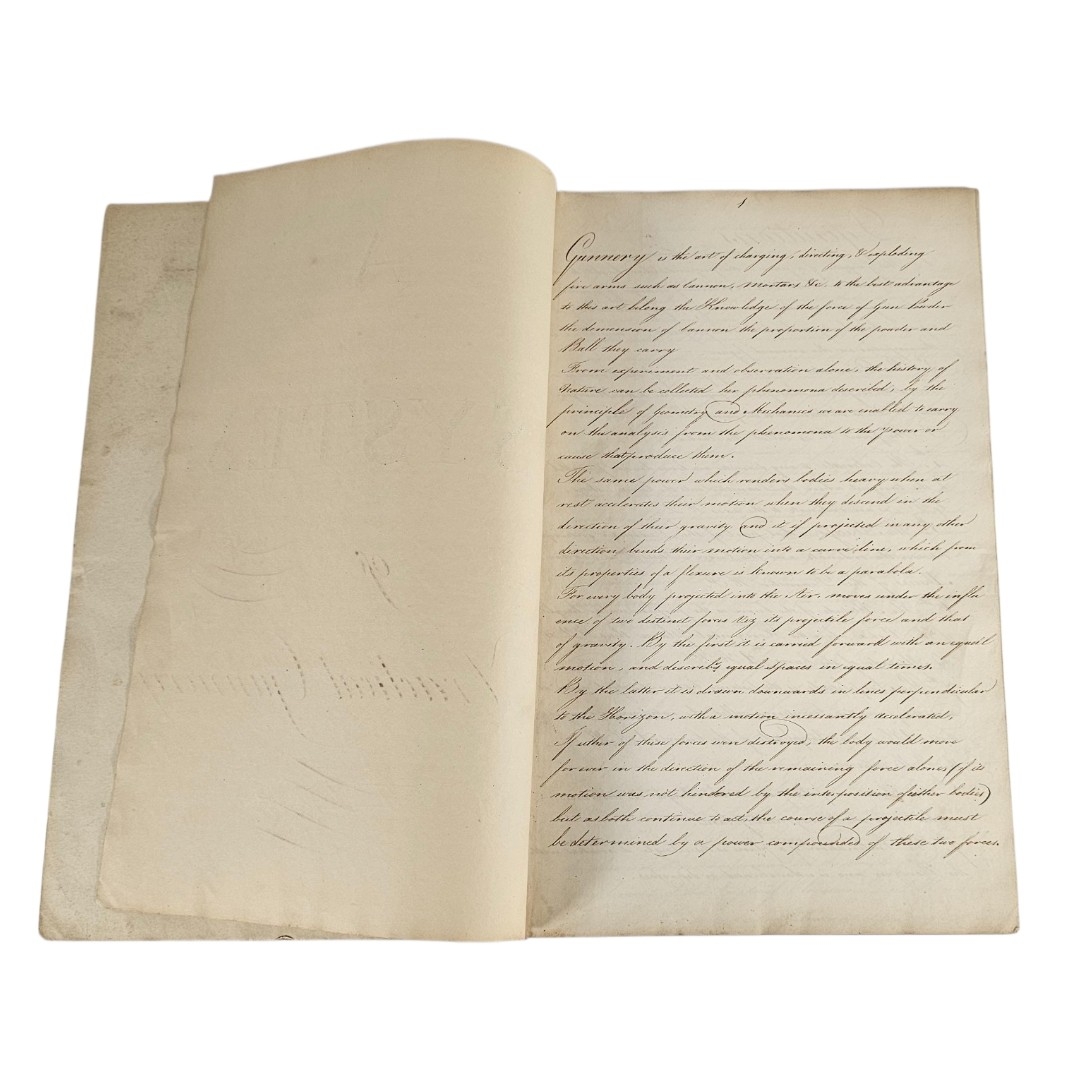 1
Gunnery is the art of charging, directing, & exploding
fire arms such as Cannon, Mortars &c. to the best advantage
to this art belong the Knowledge of the force of Gun Powder
the demension of Cannon the proportion of the powder and
Ball they carry
From experiement and observation alone, the history of
Nature can be collected her phenomena described, by the
principle of Geometry and Mechanics we are enabled to carry
on the analysis from the phenomena to the power or
cause that produce them.
The same power which renders bodies heavy when at
rest accelerates their motion when they descend in the
direction of their gravity and it if projected in any other
direction bends their motion into a curve line, which from
its properties of a flexure is known to be a parabola.
For every body projected into the Air, moves under the influ
ence of two distinct forces Viz its projectile force and that
of gravity. By the first it is carried forward with an equal
motion, and describes equal spaces in equal times.
By the latter it is drawn downwards in lines perpendicular
to the Horizon, with a motion incessantly accelerated,
If either of these forces were destroyed, the body would move
for ever in the direction of the remaining force alone, (if its
motion was not hindered by the interposition of other bodies)
but as both continue to act, the course of a projectile must
be determined by a power compounded of these two forces.